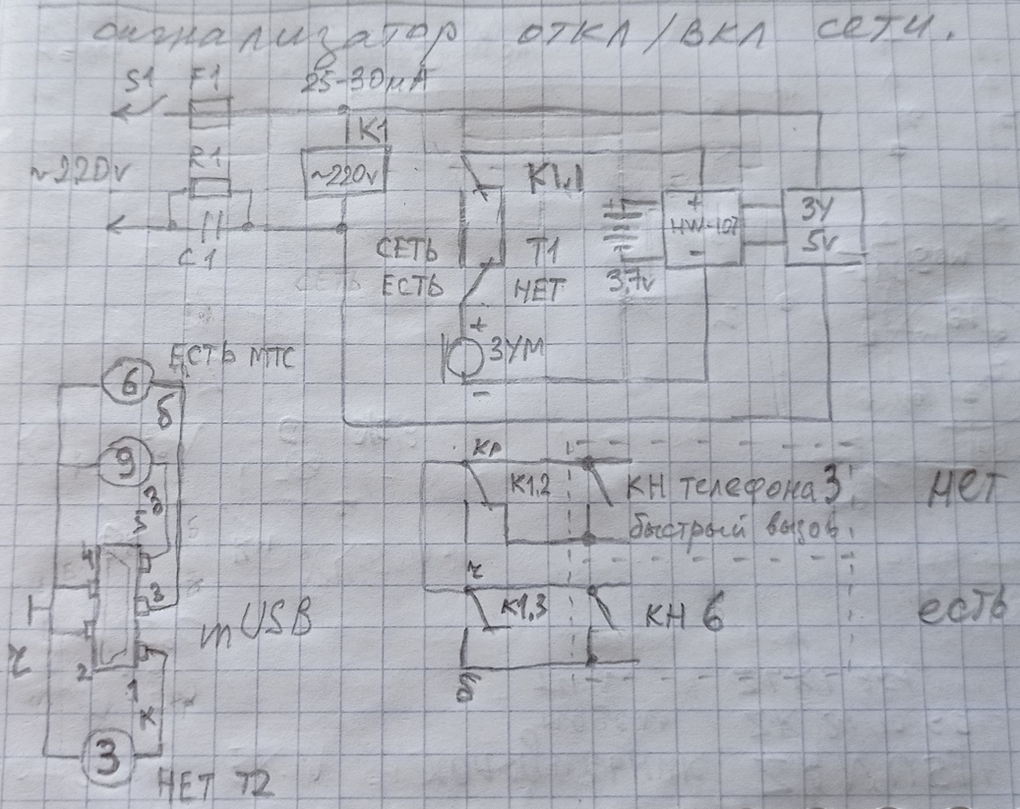 сигнализатор откл/вкл сети.
S1 F1 25-30мА
K1
R1
~220v ~220v
K1.1
+ ЗУ
HW-107 5v
C1
СЕТЬ Т1 -
ЕСТЬ НЕТ 3,7v
+
ЗУМ
-
ЕСТЬ МТС
6
б
9
З
5
4
3
mUSB
2 1
к
3
НЕТ Т2
Кр
К1.2 КН телефона 3 нет
быстрый вызов.
ч
К1.3 КН 6 есть
б